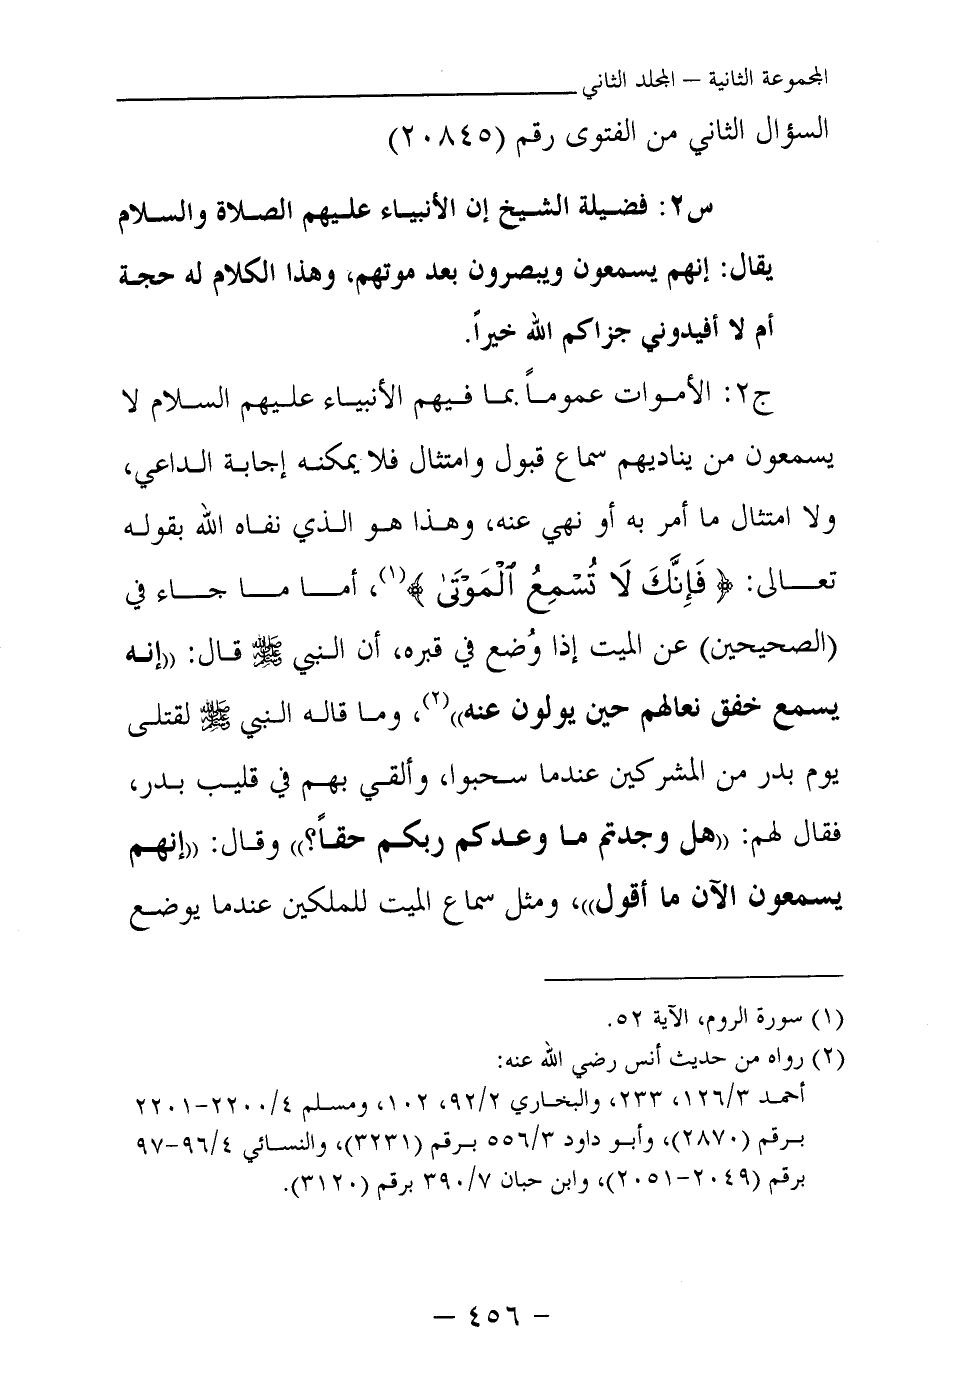 المجموعة الثانية – المجلد الثاني
السؤال الثاني من الفتوى رقم (٢٠٨٤٥)
س٢: فضيلة الشيخ إن الأنبياء عليهم الصلاة والسلام
يقال: إنهم يسمعون ويبصرون بعد موتهم، وهذا الكلام له حجة
أم لا أفيدوني جزاكم الله خيراً.
ج٢: الأموات عموماً بما فيهم الأنبياء عليهم السلام لا
يسمعون من يناديهم سماع قبول وامتثال فلا يمكنه إجابة الداعي،
ولا امتثال ما أمر به أو نهي عنه، وهذا هو الذي نفاه الله بقوله
تعالى: ﴿ فَإِنَّكَ لَا تُسْمِعُ ٱلْمَوْتَىٰ ﴾(١)، أما ما جاء في
(الصحيحين) عن الميت إذا وُضع في قبره، أن النبي ﷺ قال: ((إنه
يسمع خفق نعالهم حين يولون عنه))(٢)، وما قاله النبي ﷺ لقتلى
يوم بدر من المشركين عندما سحبوا، وألقي بهم في قليب بدر،
فقال لهم: ((هل وجدتم ما وعدكم ربكم حقاً؟)) وقال: ((إنهم
يسمعون الآن ما أقول))، ومثل سماع الميت للملكين عندما يوضع
(١) سورة الروم، الآية ٥٢.
(٢) رواه من حديث أنس رضي الله عنه:
أحمد ١٢٦/٣، ٢٣٣، والبخاري ٩٢/٢، ١٠٢، ومسلم ٢٢٠٠/٤-٢٢٠١
برقم (٢٨٧٠)، وأبو داود ٥٥٦/٣ برقم (٣٢٣١)، والنسائي ٩٦/٤-٩٧
برقم (٢٠٤٩-٢٠٥١)، وابن حبان ٣٩٠/٧ برقم (٣١٢٠).
– ٤٥٦ –